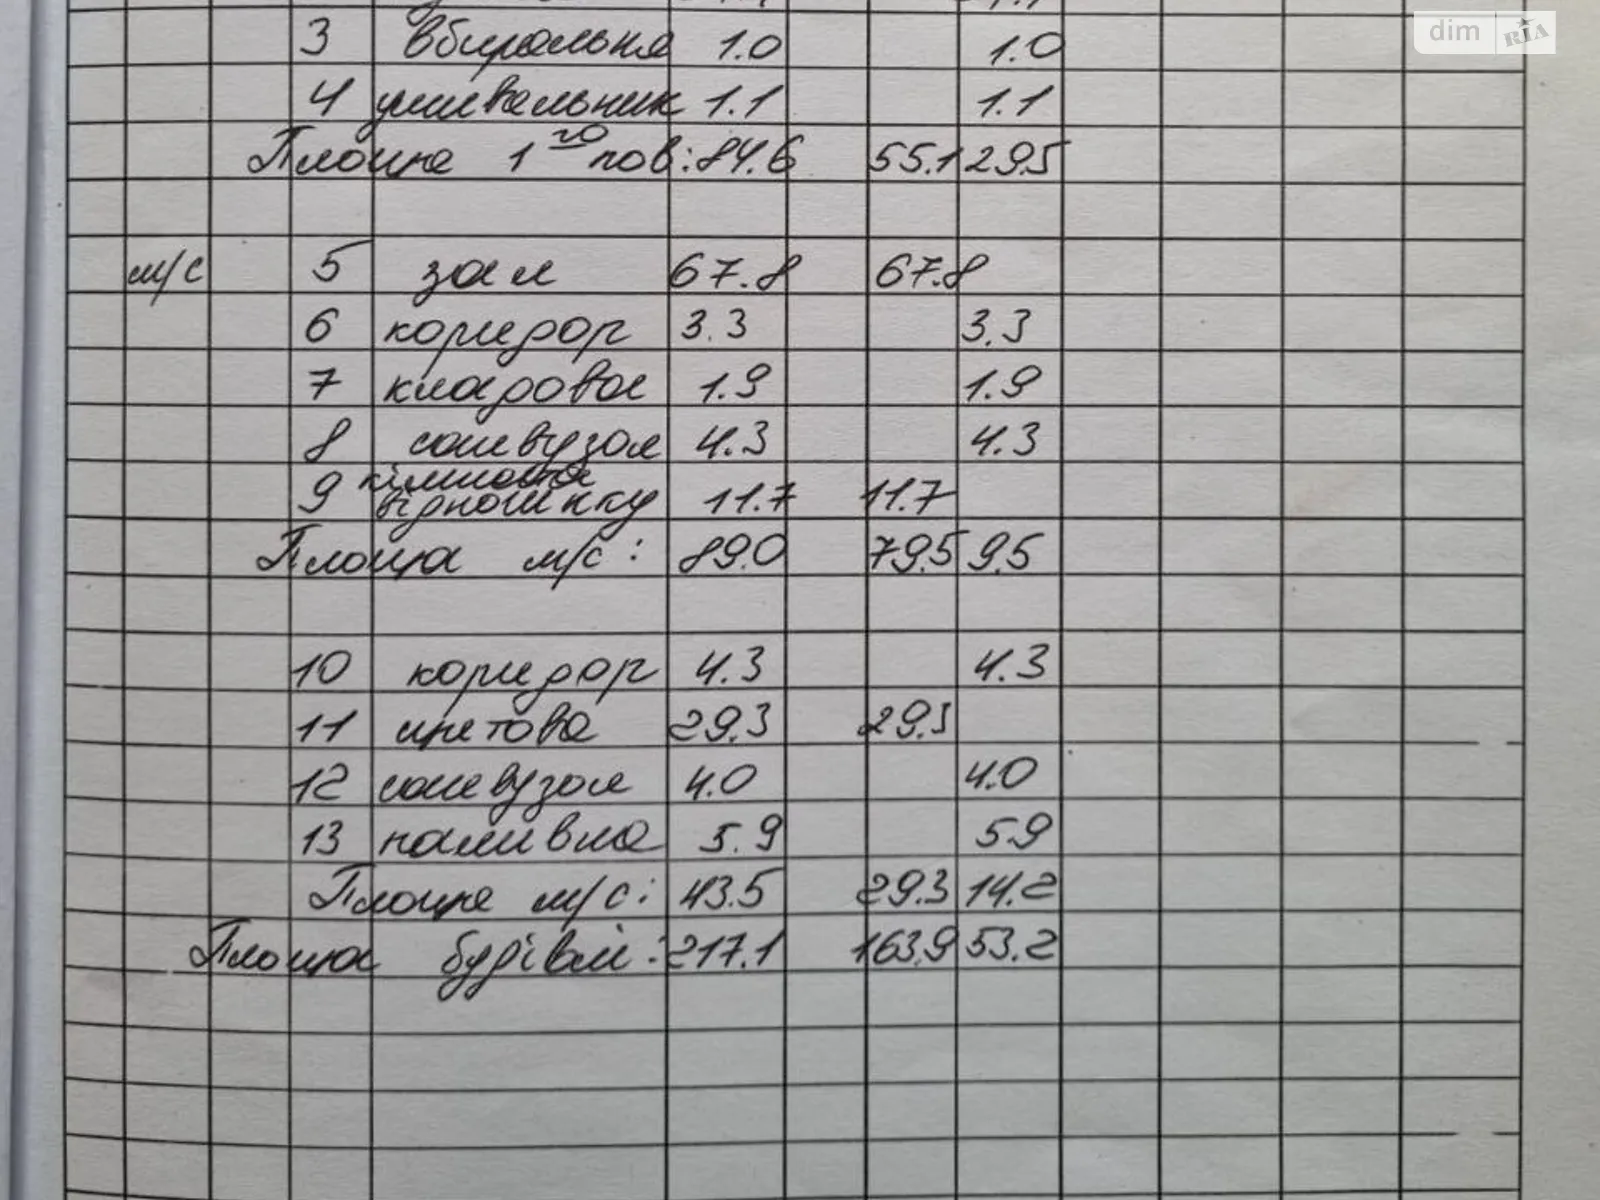 dim RIA
3 вбиральня 1.0 1.0
4 умивальник 1.1 1.1
Площа 1го пов: 84.6 55.1 29.5
м/с 5 зал 67.8 67.8
6 коридор 3.3 3.3
7 кладова 1.9 1.9
8 санвузол 4.3 4.3
9 кімната відпочинку 11.7 11.7
Площа м/с: 89.0 79.5 9.5
10 коридор 4.3 4.3
11 житлова 29.3 29.3
12 санвузол 4.0 4.0
13 паливна 5.9 5.9
Площа м/с: 43.5 29.3 14.2
Площа будівлі: 217.1 163.9 53.2